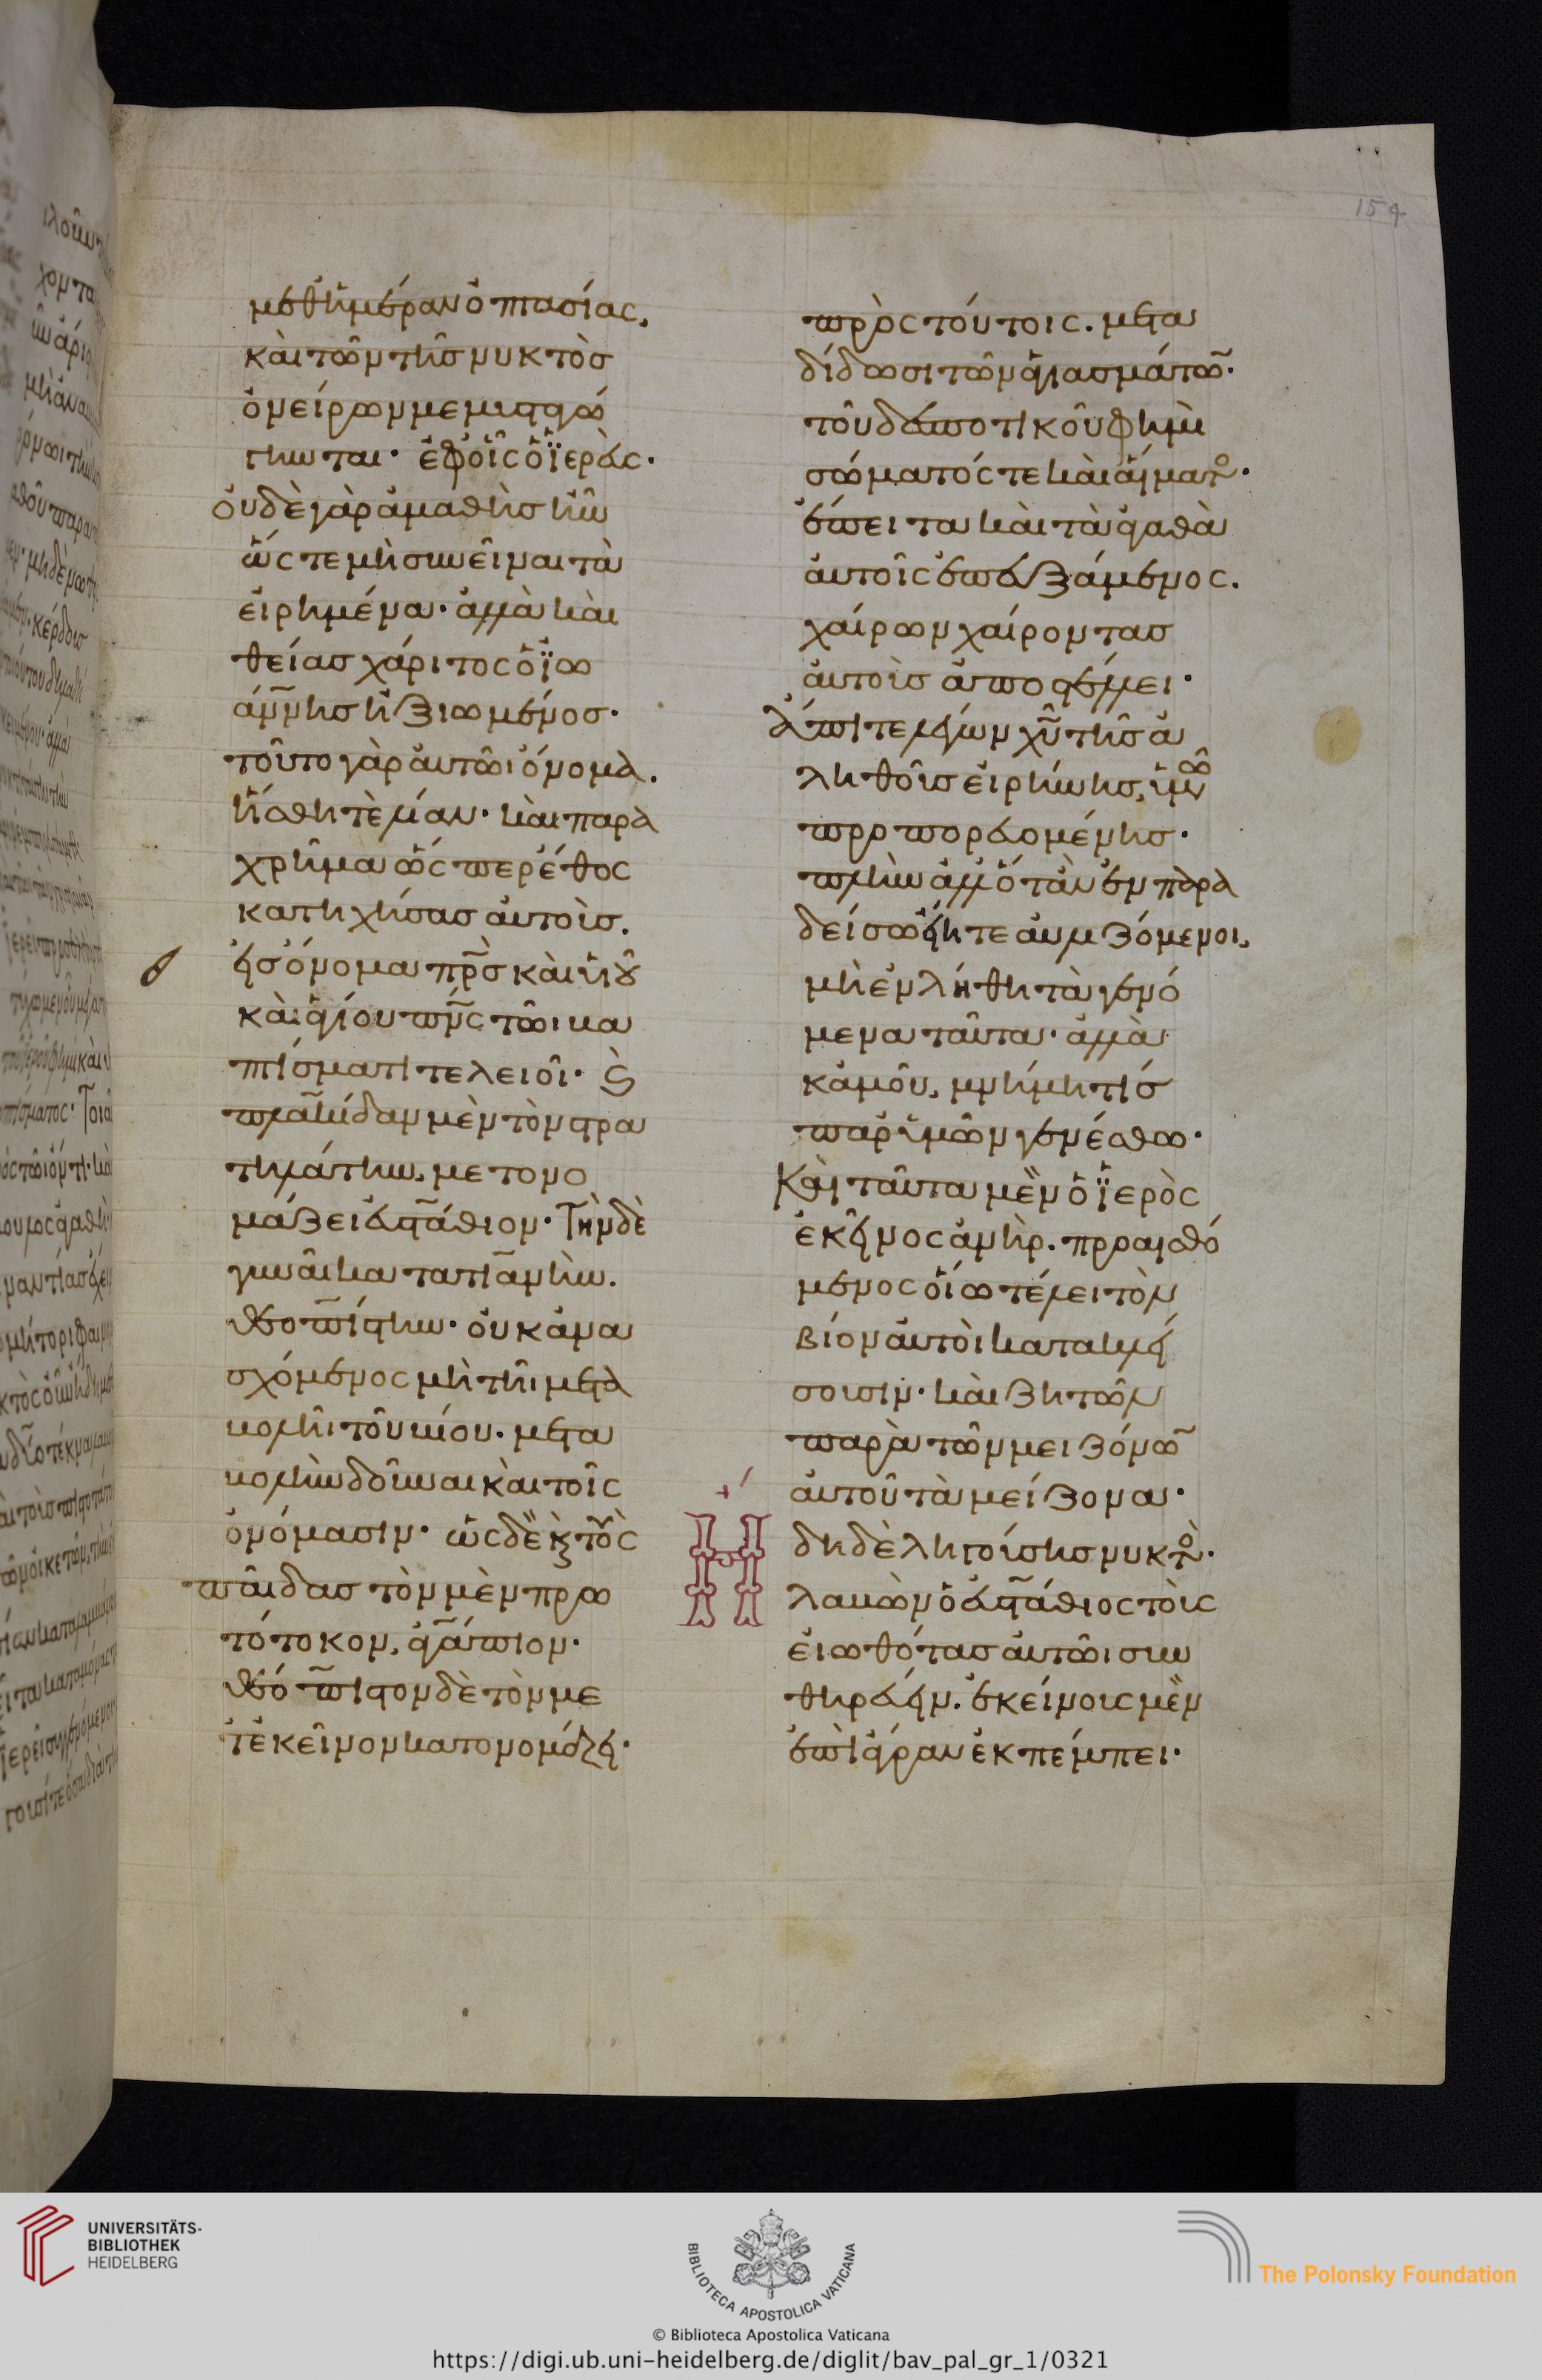 μεθημέραν ὀπτασίας,
καὶ τῶν τῆσ νυκτὸσ
ὀνείρων μεμυσταγώ
γηνται· ἐφοἷς ὁ ἱερεύς·
οὐδὲ γὰρ ἀμαθὴσ ἦν
ὥς τε μὴ συνεῖναι τὰ
εἰρημένα· ἀλλὰ καὶ
θείασ χάριτος ὁ ϊω
άννησ ἠξιωμένοσ·
τοῦτο γὰρ αὐτῶι ὄνομα.
ἥσθη τὲ λίαν· καὶ παρα
χρῆμα ὥς περ ἔθος
κατηχήσασ αὐτοὺσ.
εἰσ ὄνομα πρ̅σ καὶ υἱοῦ
καὶ ἁγίου πν̅ς τῶι βα
πτίσματι τελειοῖ· Ϛ
πλακίδαν μὲν τὸν στρα
τηλάτην, μετονο
μάζει εὐστάθιον· Τὴν δὲ
γυναῖκα τατιανὴν.
θεοπίστην· οὐκ ἀνα
σχόμενος μὴ τῆι μετα
βολῆι τοῦ βίου· μετα
βολὴν δοῦναι καὶ τοῖς
ὀνόμασιν· ὡς δὲ ϗ τοὺς
παῖδασ τὸν μὲν πρω
τότοκον, ἀγάπιον·
θεόπιστον δὲ τὸν με
τ ἐκεῖνον κατονομάζει·
πρὸς τούτοις. μετα
δίδωσι τῶν ἁγιασμάτων·
τοῦ δεσποτικοῦ φημὶ
σώματός τε καὶ αἵματος·
ἔπειτα καὶ τἀγαθὰ
αὐτοῖς ἐπευξάμενος.
χαίρων χαίροντασ
αὐτοὺσ ἀποστέλλει·
ἄπιτε λέγων χ̅υ τῆσ ἀ
ληθοῦσ εἰρήνησ, ὑμῶν
προπορευομένησ·
πλὴν ἀλλ ὅταν ἐν παρα
δείσω ἦτε αὐλιζόμενοι,
μὴ ἐν λήθη τὰ γενό
μενα ταῦτα· ἀλλὰ
κἀμοῦ, μνήμη τίσ
παρ ὑμῶν γενέσθω·
Καὶ ταῦτα μὲν ὁ ϊερὸς
ἐκεῖνος ἀνὴρ. προαισθό
μενος οἵω τέλει τὸν
βίον αὐτοὶ κατακλεί
σουσιν· καὶ ζητῶν
παρὰ τῶν μειζόνων
αὐτοῦ τὰ μείζονα·
Ηδη δὲ ληγούσησ νυκτὸς·
λαβὼν ὁ εὐστάθιος τοὺς
εἰωθότασ αὐτῶι συν
θηρεύειν. ἐκείνους μὲν
ἐπ ἄγραν ἐκπέμπει·
154
UNIVERSITÄTS-
BIBLIOTHEK
HEIDELBERG
BIBLIOTECA APOSTOLICA VATICANA
The Polonsky Foundation
© Biblioteca Apostolica Vaticana
https://digi.ub.uni-heidelberg.de/diglit/bav_pal_gr_1/0321